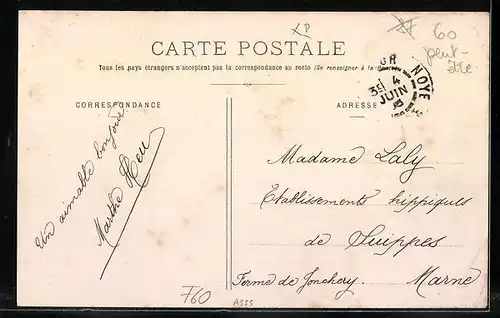 XP
60
peut-
être
CARTE POSTALE
Tous les pays étrangers n'acceptent pas la correspondance au recto (Se renseigner à la
CORRESPONDANCE
ADRESSE
NOYE
3E 4
JUIN
Un aimable bonjour
Marthe Heu
Madame Laly
Etablissements hippiques
de Suippes
Ferme de Jonchery. Marne
F60
A555